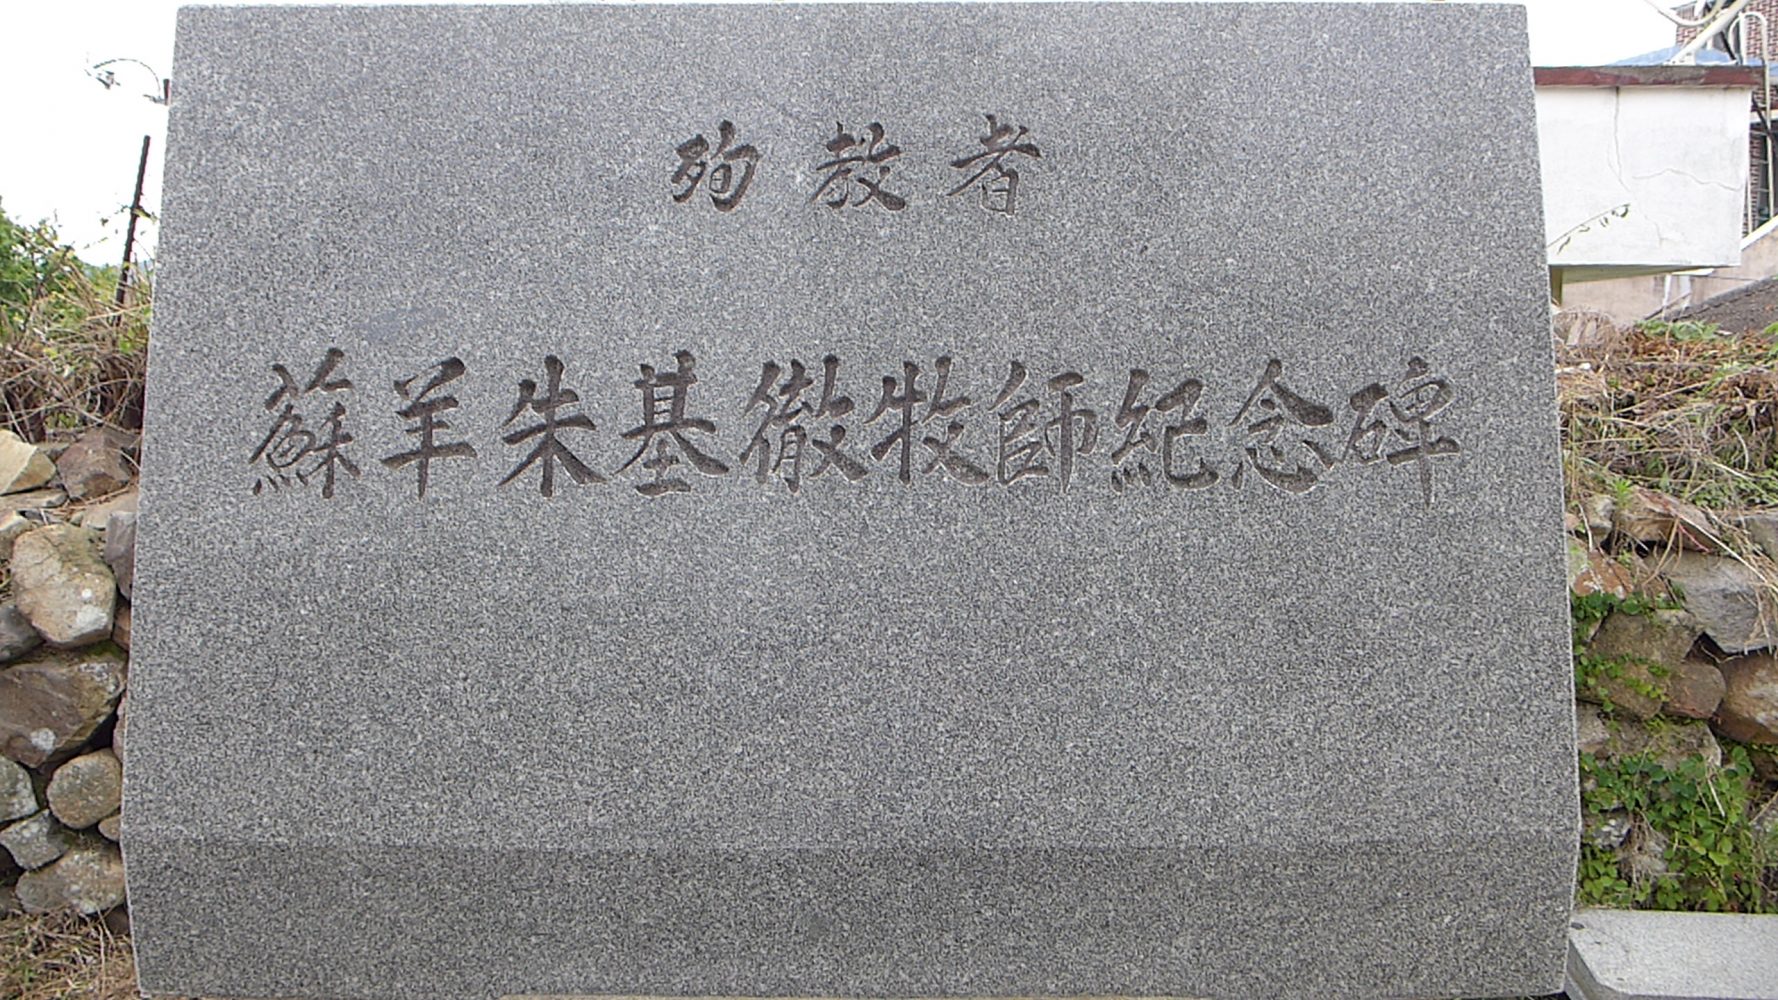 殉教者
蘇羊朱基徹牧師紀念碑